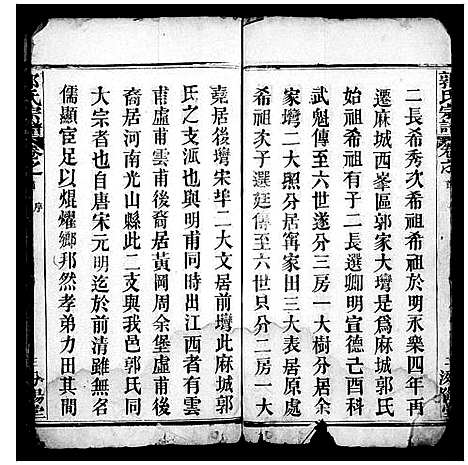 郭氏宗譜
二長希秀次希祖希祖於明永樂四年再
遷麻城西峯區郭家大塆是為麻城郭氏
始祖希祖有子二長選卿明宣德己酉科
武魁傳至六世遂分三房一大樹分居郭
家塆二大照分居窰家田三大表居原處
希祖次子選廷傳至六世只分二房一大
堯居後塆宋羋二大文居前塆此麻城郭
氏之支派也與明甫同時出江西者有雲
甫虛甫雲甫後裔居黃岡周余堡虛甫後
裔居河南光山縣此二支與我邑郭氏同
大宗者也自唐宋元明迄於前清雖無名
儒顯宦足以焜燿鄉邦然孝弟力田其間
郭氏宗譜
序